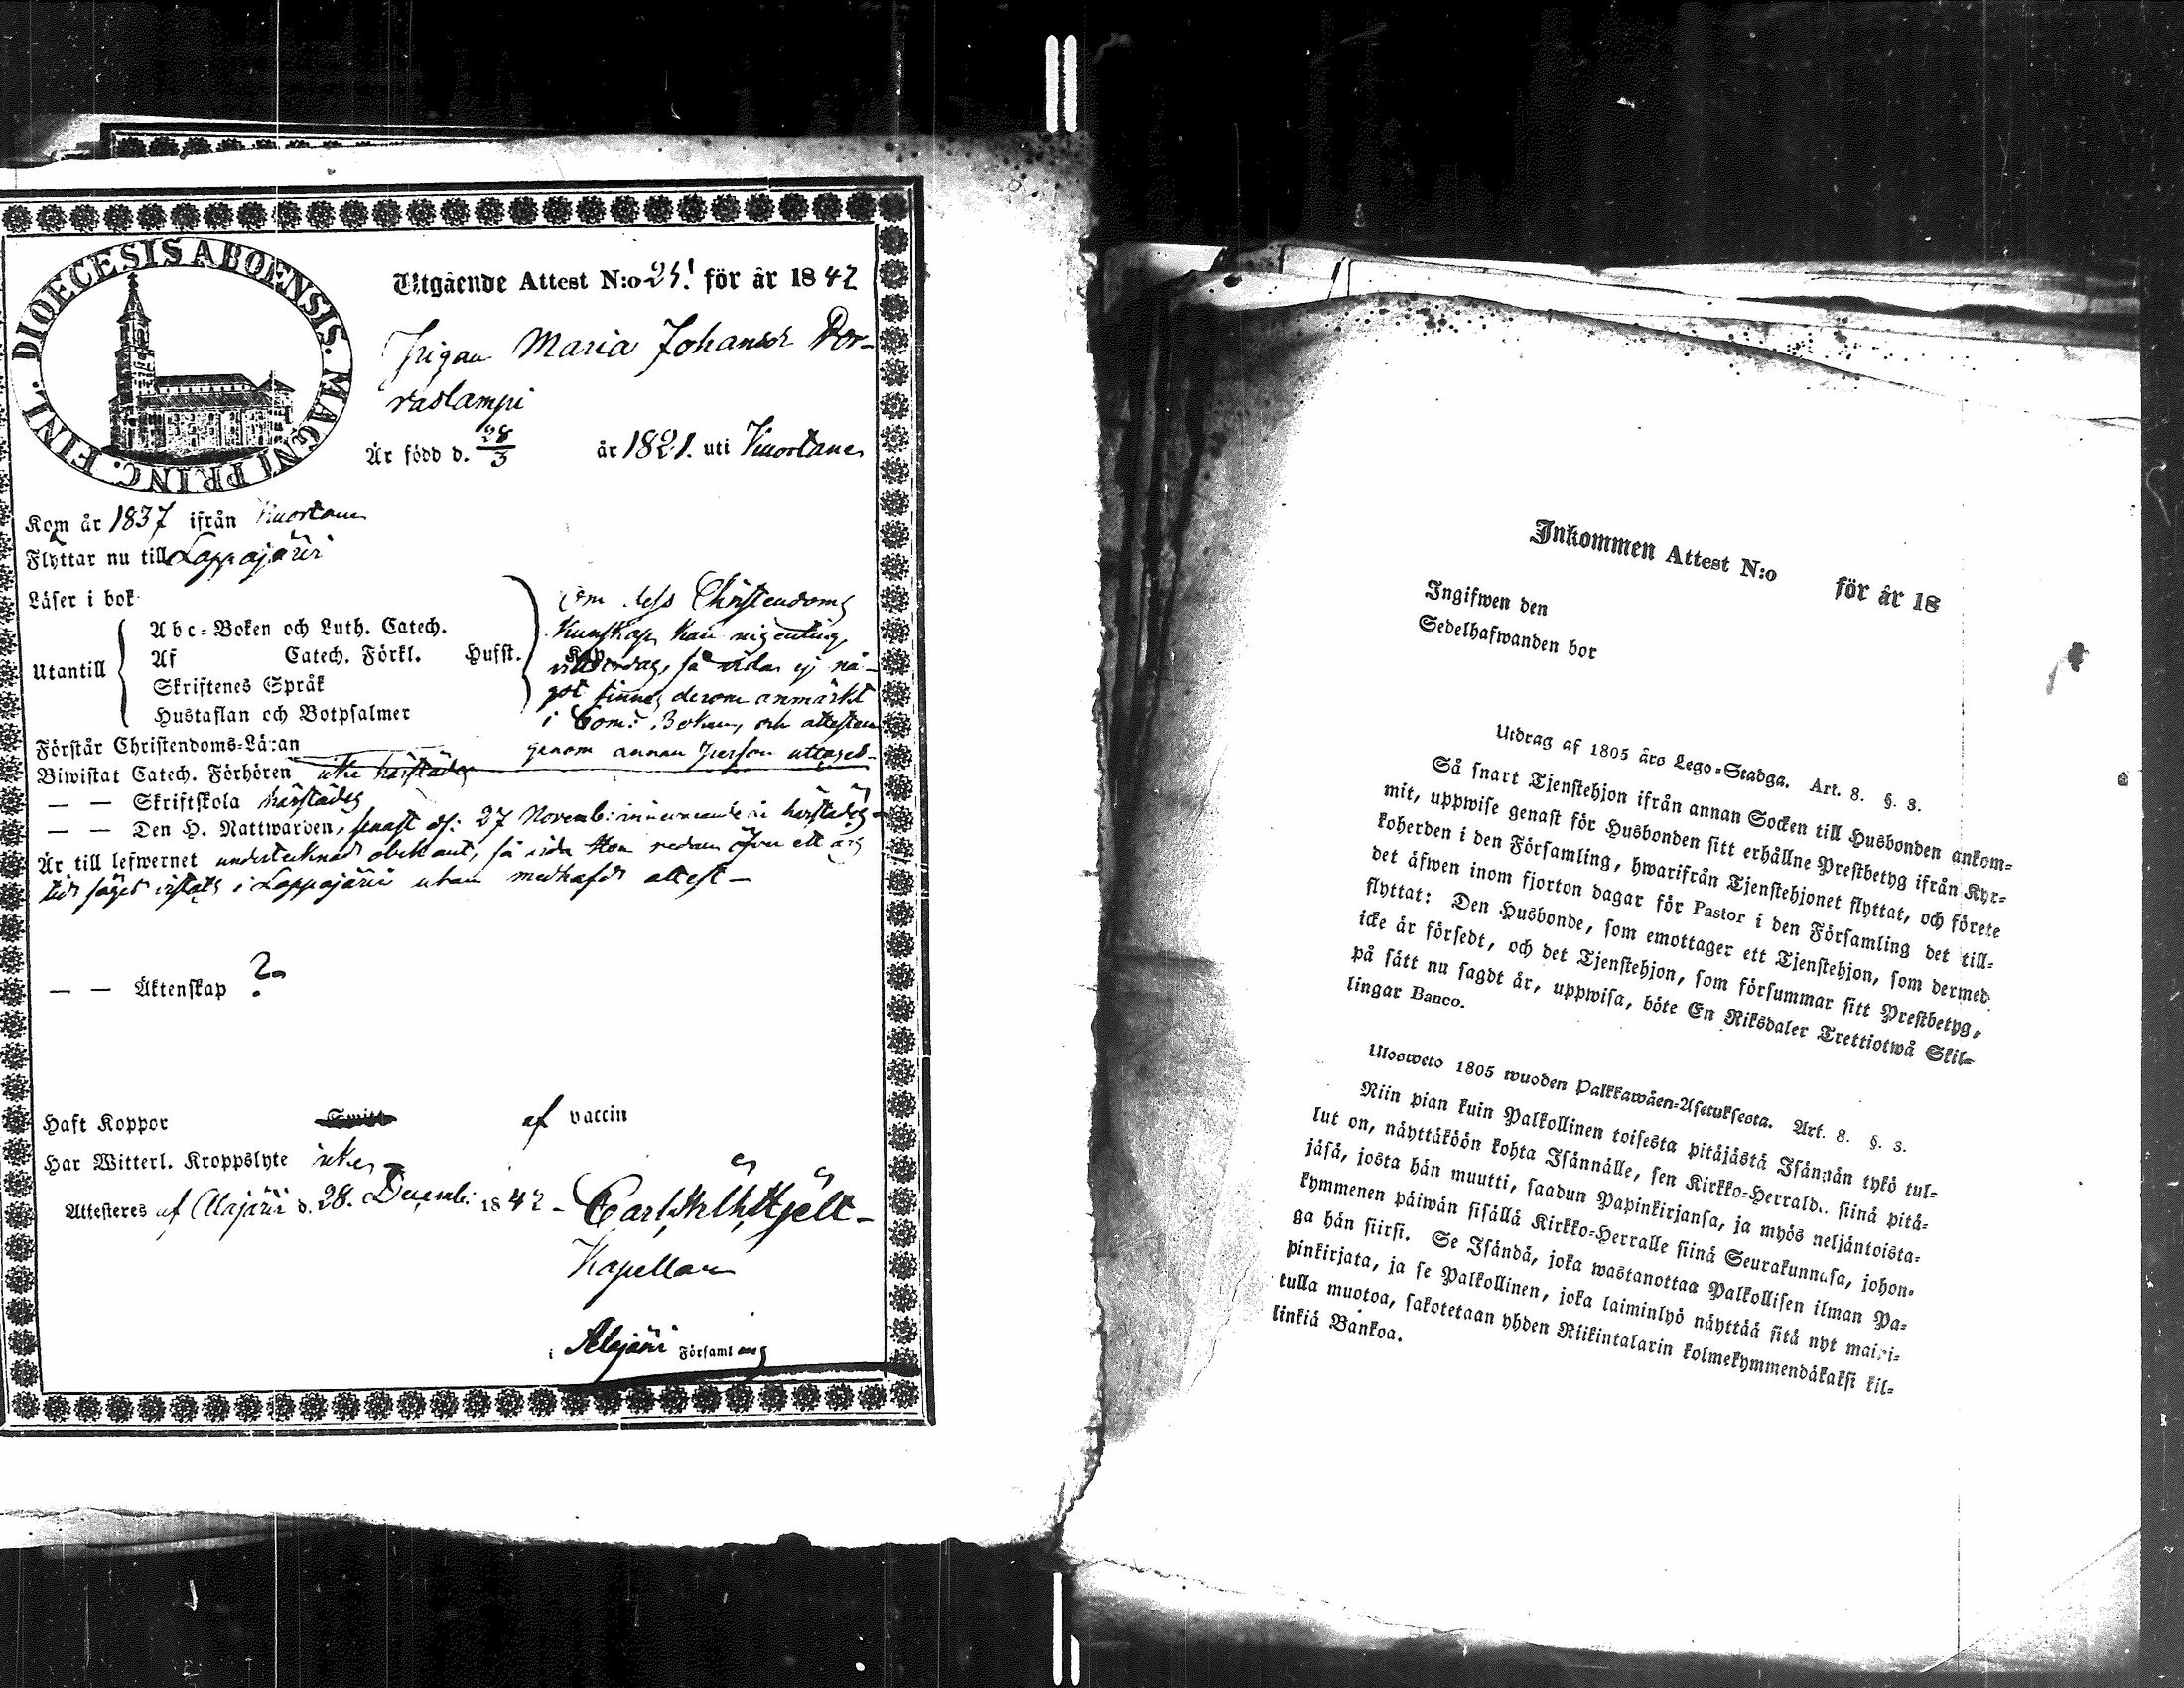 DIOECESIS ABOENSIS. MAGNI PRINC. FINL.
Utgående Attest N:o 25! för år 1842
Pigan Maria Johansdr Por-
raslampi
Är född d. 28/3 år 1821. uti Kuortane
Kom år 1837 ifrån Kuortane
Flyttar nu till Lappajärvi
Läser i bok
Utantill
Abc-Boken och Luth. Catech.
Af Catech. Förkl. Husst. Kap.
Skriftenes Språk
Hustaflan och Botpsalmer
Om dess Christendoms
Kunskap kan ingenting
så vida ej nå-
got finnes derom anmärkt
i Com: Boken, och attesten
genom annan person uttages.
Förstår Christendoms-Läran
Biwistat Catech. Förhören icke härstädes
— — Skriftskola härstädes
— — Den H. Nattwarden, senast d: 27 Novemb: härstädes
Är till lefwernet undertecknad obekant, så vida Hon redan öfver ett års
tid säges vistats i Lappajärvi utan medhafd attest —
— — Äktenskap ?
Haft Koppor af vaccin
Har Witterl. Kroppslyte icke
Attesteras af Alajärvi d. 28. Decemb: 1842 –
Carl Wilh. Hjelt –
Kapellan
i Alajärvi Församling
Inkommen Attest N:o för år 18
Ingifwen den
Sedelhafwanden bor
Utdrag af 1805 års Lego-Stadga. Art. 8. §. 3.
Så snart Tjenstehjon ifrån annan Socken till Husbonden ankom-
mit, uppwise genast för Husbonden sitt erhållne Prestbetyg ifrån Kyr-
koherden i den Församling, hwarifrån Tjenstehjonet flyttat, och förete
det äfwen inom fjorton dagar för Pastor i den Församling det till-
flyttat: Den Husbonde, som emottager ett Tjenstehjon, som dermed
icke är försedt, och det Tjenstehjon, som försummar sitt Prestbetyg,
på sätt nu sagdt är, uppwisa, böte En Riksdaler Trettiotwå Skil-
lingar Banco.
Ulosweto 1805 wuoden Palkkawäen-Asetuksesta. Art. 8. §. 3.
Niin pian kuin Palkollinen toisesta pitäjästä Isännän tykö tul-
lut on, näyttäköön kohta Isännälle, sen Kirkko-Herralda siinä pitä-
jäsä, josta hän muutti, saadun Papinkirjansa, ja myös neljäntoista-
kymmenen päiwän sisällä Kirkko-Herralle siinä Seurakunnasa, johon-
ga hän siirsi. Se Isändä, joka wastanottaa Palkollisen ilman Pa-
pinkirjata, ja se Palkollinen, joka laiminlyö näyttää sitä nyt maini-
tulla muotoa, sakotetaan yhden Riikintalarin kolmekymmendäkaksi kil-
linkiä Bankoa.